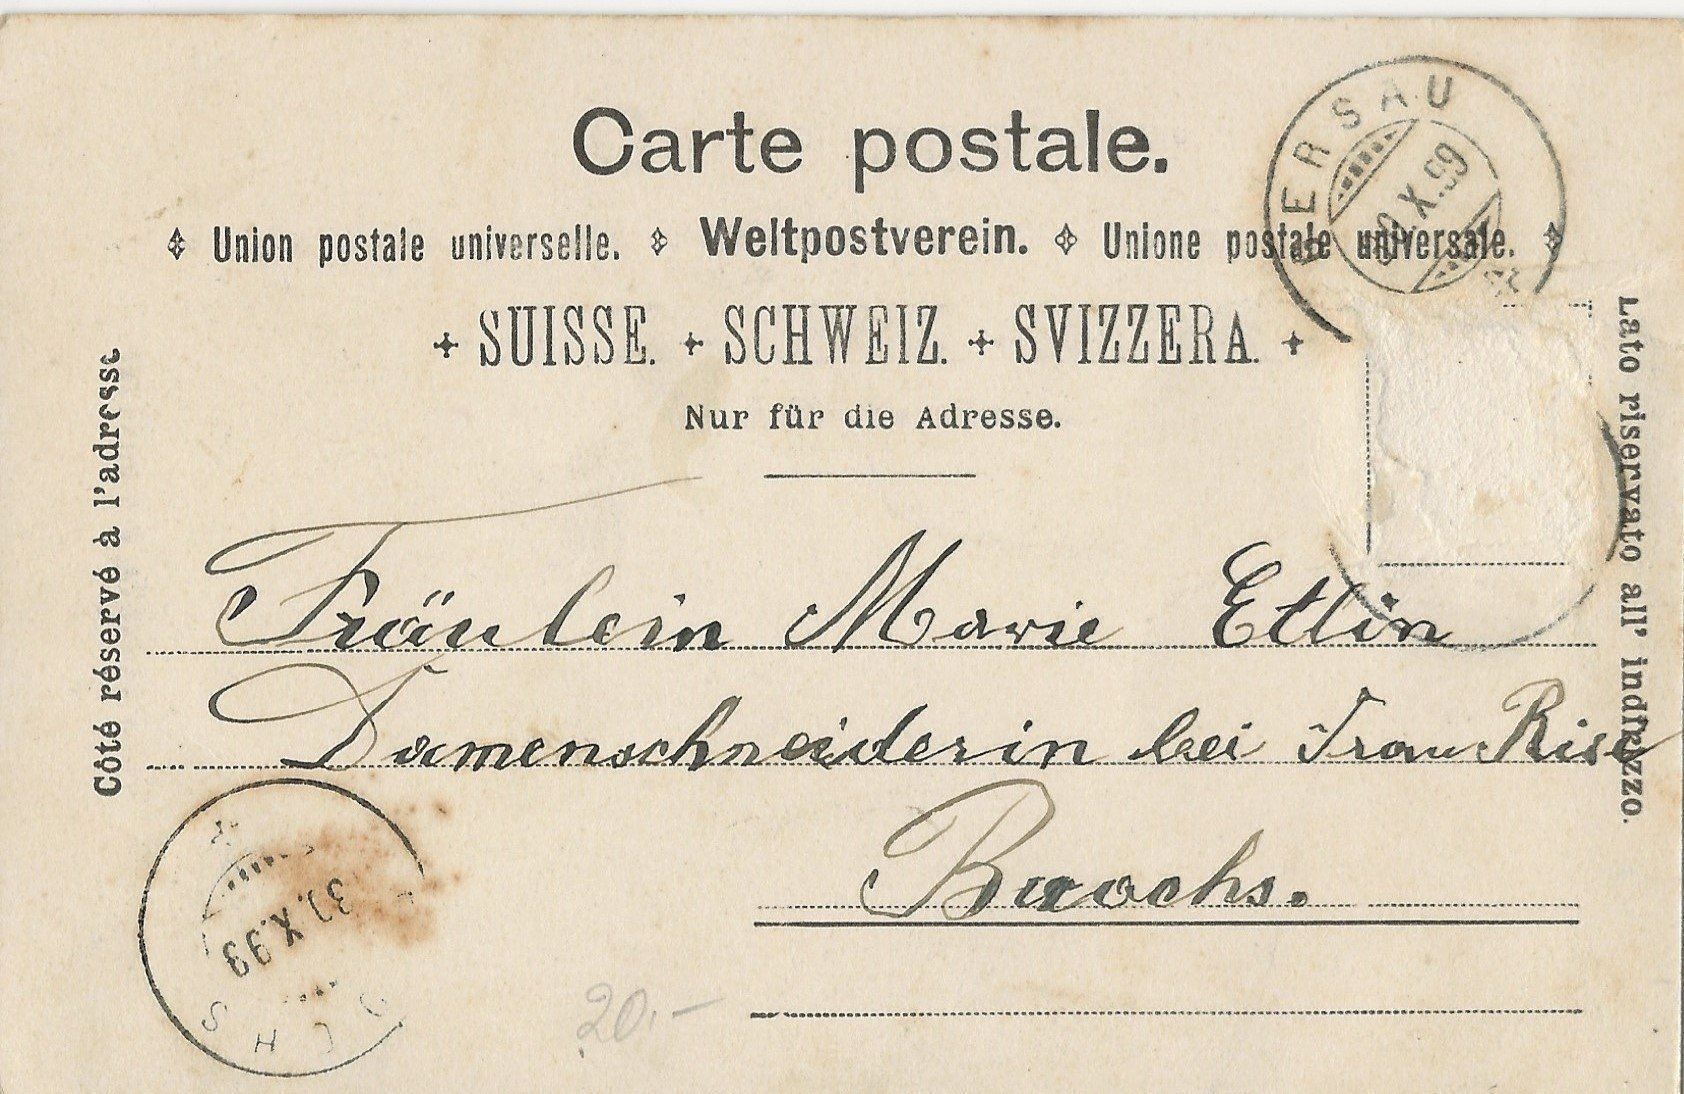 Carte postale.
Union postale universelle. Weltpostverein. Unione postale universale.
SUISSE. SCHWEIZ. SVIZZERA.
Nur für die Adresse.
Côté réservé à l'adresse
Lato riservato all' indirizzo.
GERSAU
X.99
Fräulein Marie Etlin
Damenschneiderin bei Frau Rise
Buochs.
30.X.99
CHS
20.-